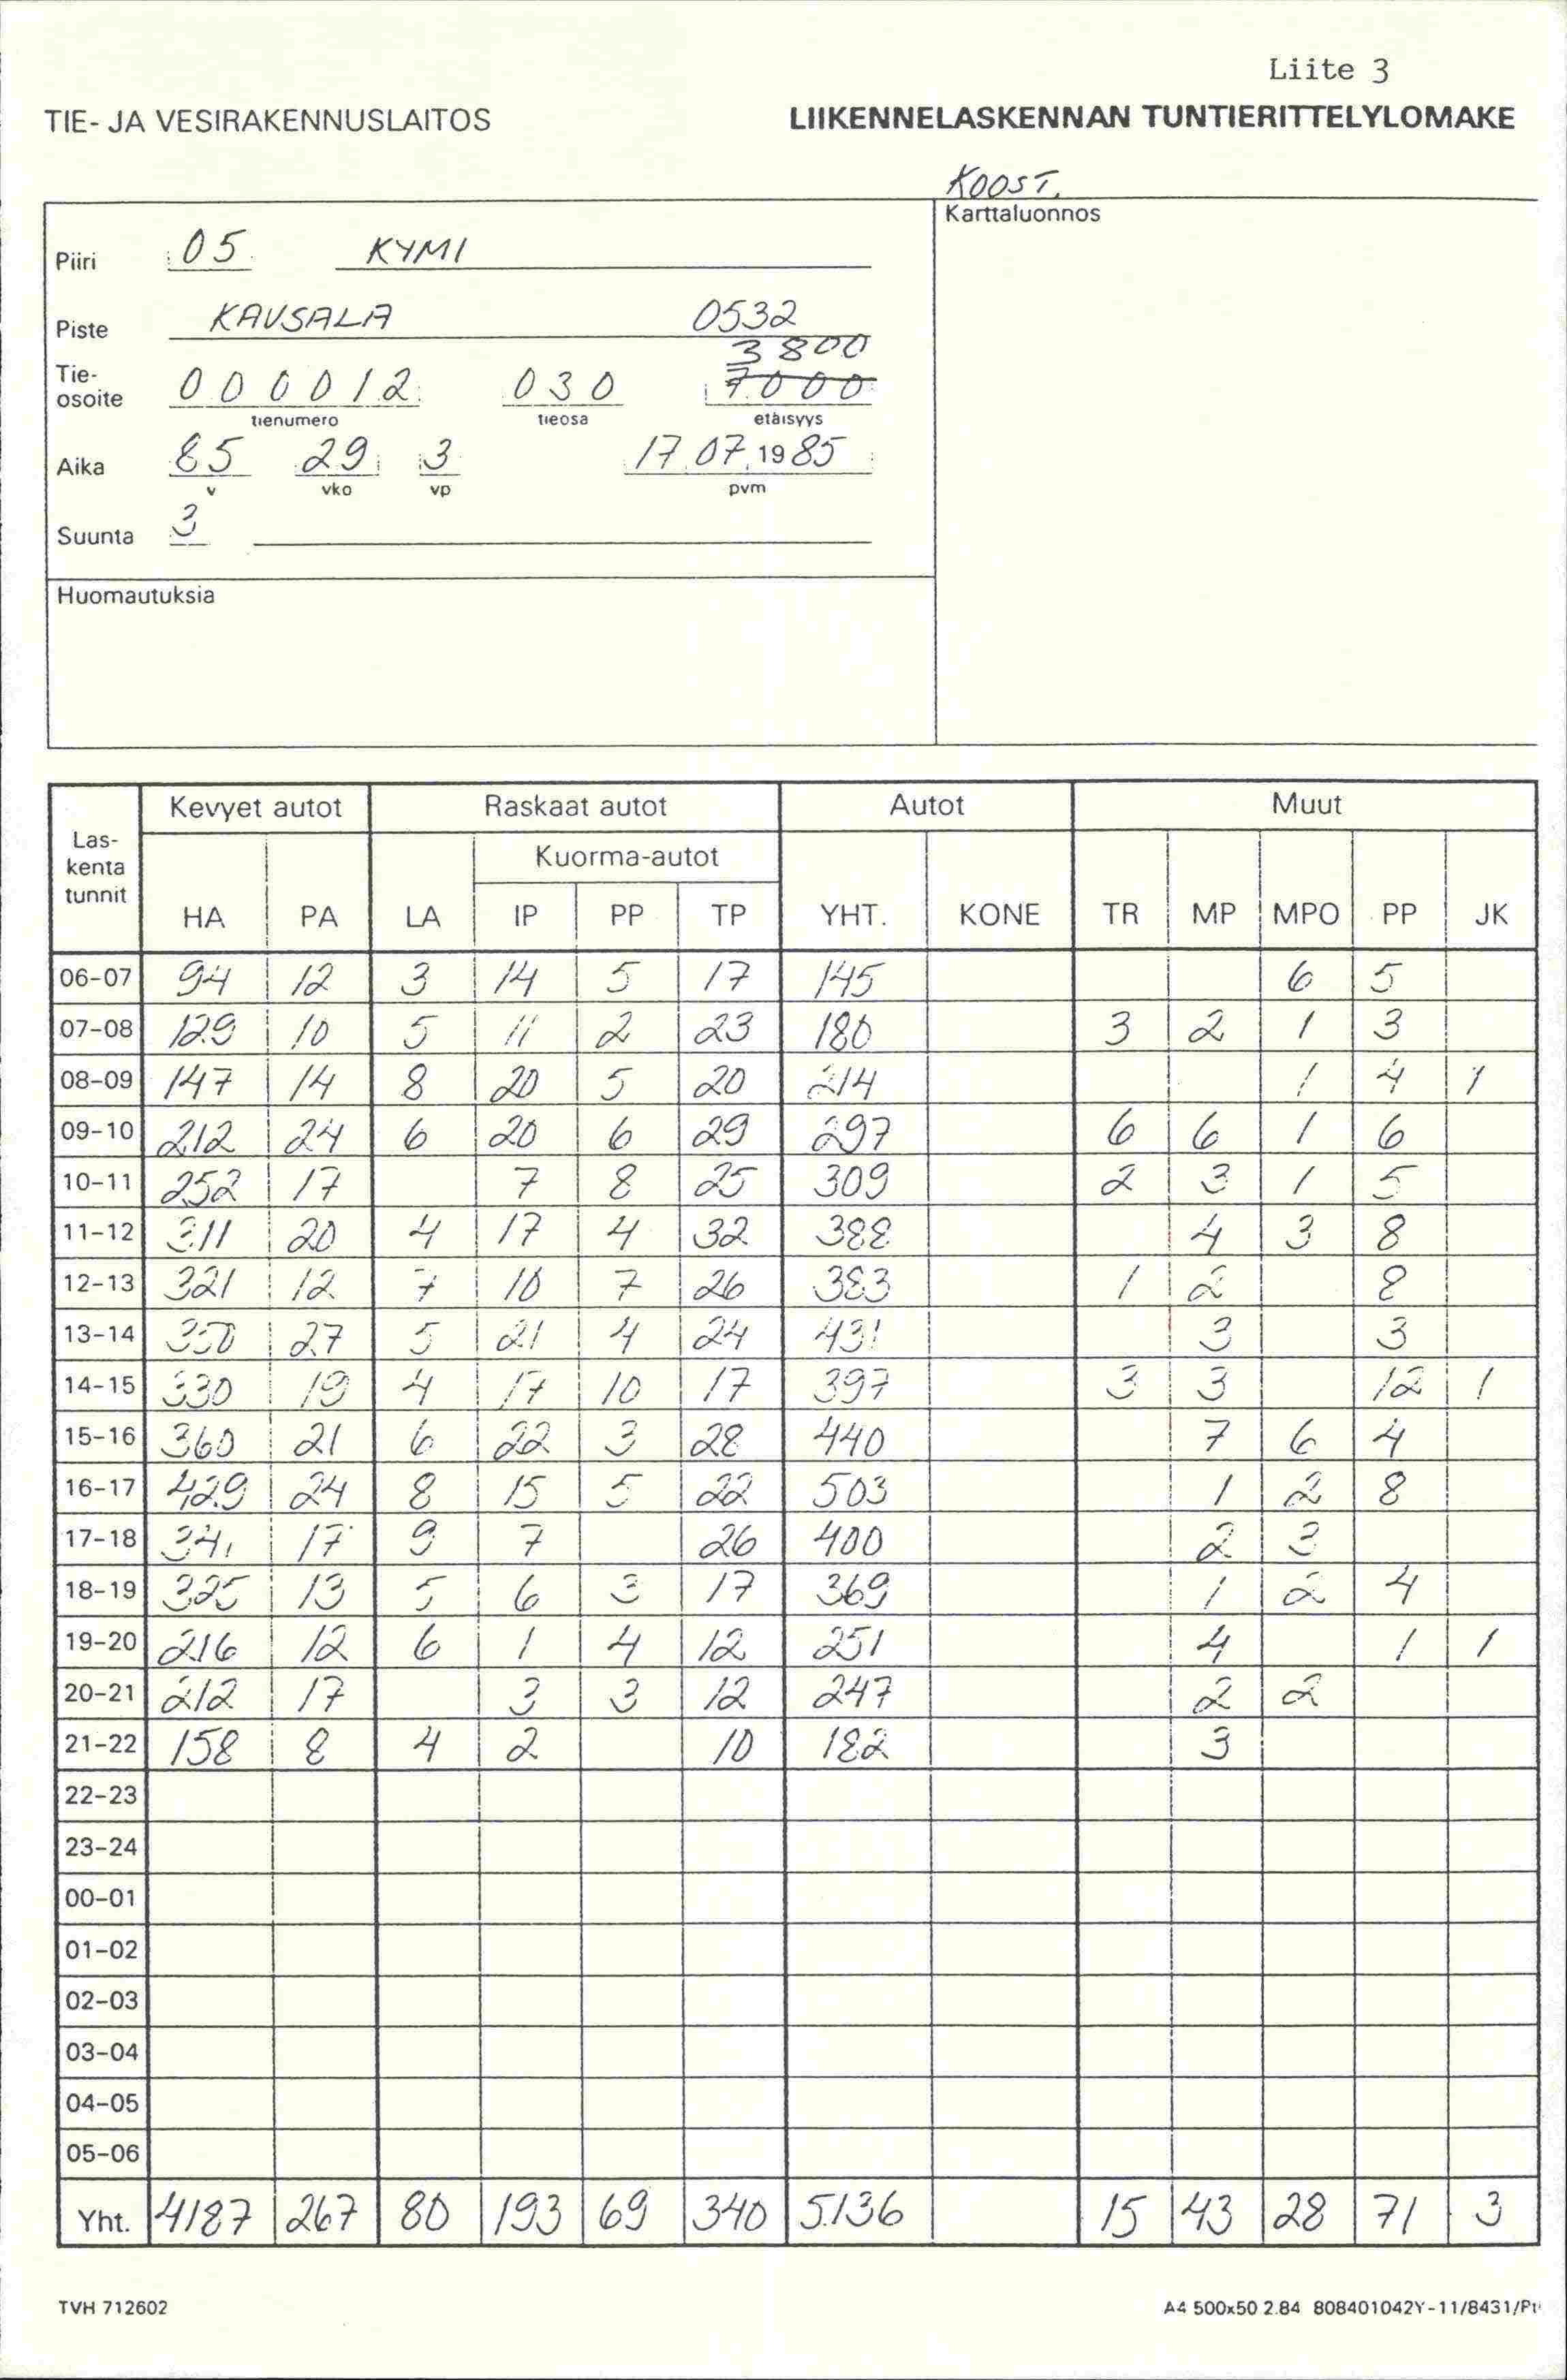 Liite 3
TIE- JA VESIRAKENNUSLAITOS LIIKENNELASKENNAN TUNTIERITTELYLOMAKE
KOOST.
Karttaluonnos
Piiri 05 KYMI
Piste KAUSALA 0532
3800
Tie-osoite 000012 030 7000
tienumero tieosa etäisyys
Aika 85 29 3 17.07.1985
v vko vp pvm
Suunta 3
Huomautuksia
Las-kenta tunnit Kevyet autot Raskaat autot Autot Muut
Kuorma-autot
HA PA LA IP PP TP YHT. KONE TR MP MPO PP JK
06-07 94 12 3 14 5 17 145 6 5
07-08 129 10 5 11 2 23 180 3 2 1 3
08-09 147 14 8 20 5 20 214 1 4 1
09-10 212 24 6 20 6 29 297 6 6 1 6
10-11 252 17 7 8 25 309 2 3 1 5
11-12 311 20 4 17 4 32 388 4 3 8
12-13 321 12 7 10 7 26 383 1 2 8
13-14 350 27 5 21 4 24 431 3 3
14-15 330 19 4 17 10 17 397 3 3 12 1
15-16 360 21 6 22 3 28 440 7 6 4
16-17 429 24 8 15 5 22 503 1 2 8
17-18 341 17 9 7 26 400 2 3
18-19 325 13 5 6 3 17 369 1 2 4
19-20 216 12 6 1 4 12 251 4 1 1
20-21 212 17 3 3 12 247 2 2
21-22 158 8 4 2 10 182 3
22-23
23-24
00-01
01-02
02-03
03-04
04-05
05-06
Yht. 4187 267 80 193 69 340 5136 15 43 28 71 3
TVH 712602 A4 500x50 2.84 808401042Y-11/8431/Pt